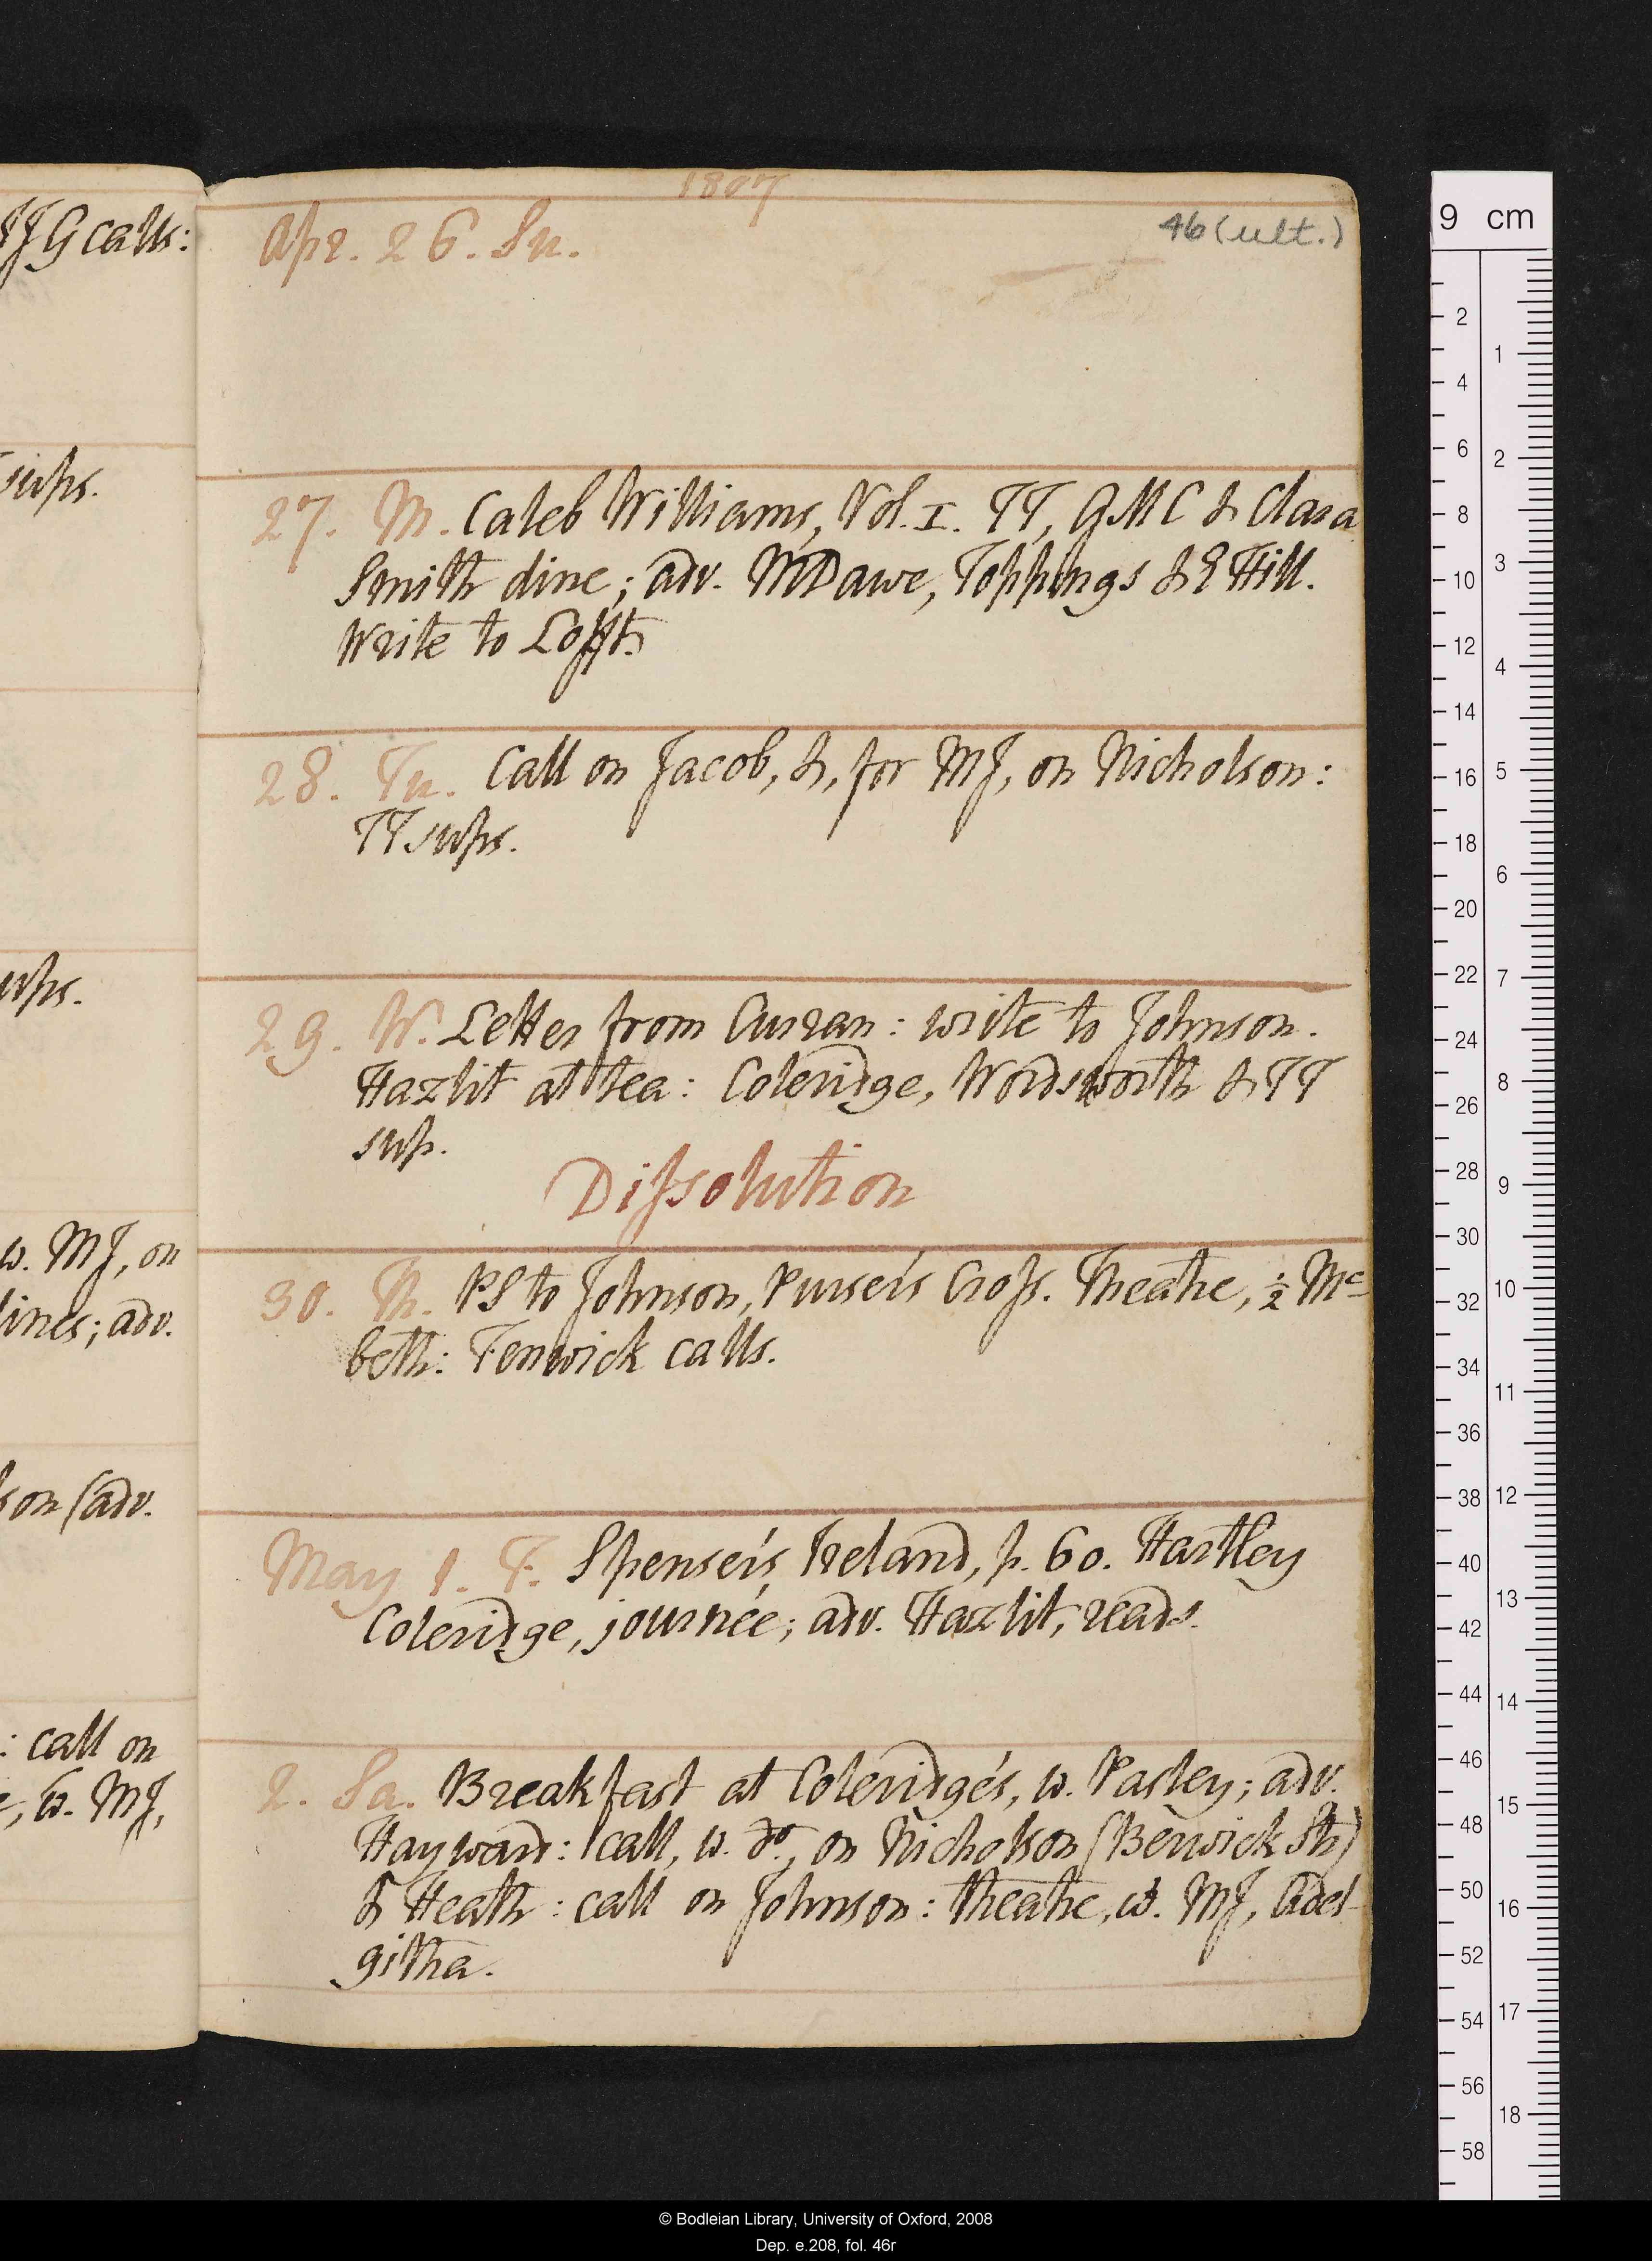 JJG calls:
sups.
sups.
w. MJ, on
dines; adv.
son (adv.
: call on
, w. MJ,
1807
46 (ult.)
Apr. 26. Su.
27. M. Caleb Williams, Vol. I. TT, GMC & Clara
Smith dine; adv. MDawe, Toppings & E Hill.
Write to Lofft.
28. Tu. Call on Jacob, &, for MJ, on Nicholson:
TT sups.
29. W. Letter from Curran: write to Johnson.
Hazlit at tea: Coleridge, Wordsworth & TT
sup.
Diſsolution
30. Th. PS to Johnson, Purser's Croſs. Theatre, ½ Mc
beth: Fenwick calls.
May 1. F. Spenser's Ireland, p. 60. Hartley
Coleridge, journée; adv. Hazlit, reads.
2. Sa. Breakfast at Coleridge's, w. Pasley; adv.
Hayward: call, w. do, on Nicholson (Berwick St)
& Heath: call on Johnson: theatre, w. MJ, Adel-
githa.
9 cm
2
4
6
8
10
12
14
16
18
20
22
24
26
28
30
32
34
36
38
40
42
44
46
48
50
52
54
56
58
1
2
3
4
5
6
7
8
9
10
11
12
13
14
15
16
17
18
© Bodleian Library, University of Oxford, 2008
Dep. e.208, fol. 46r